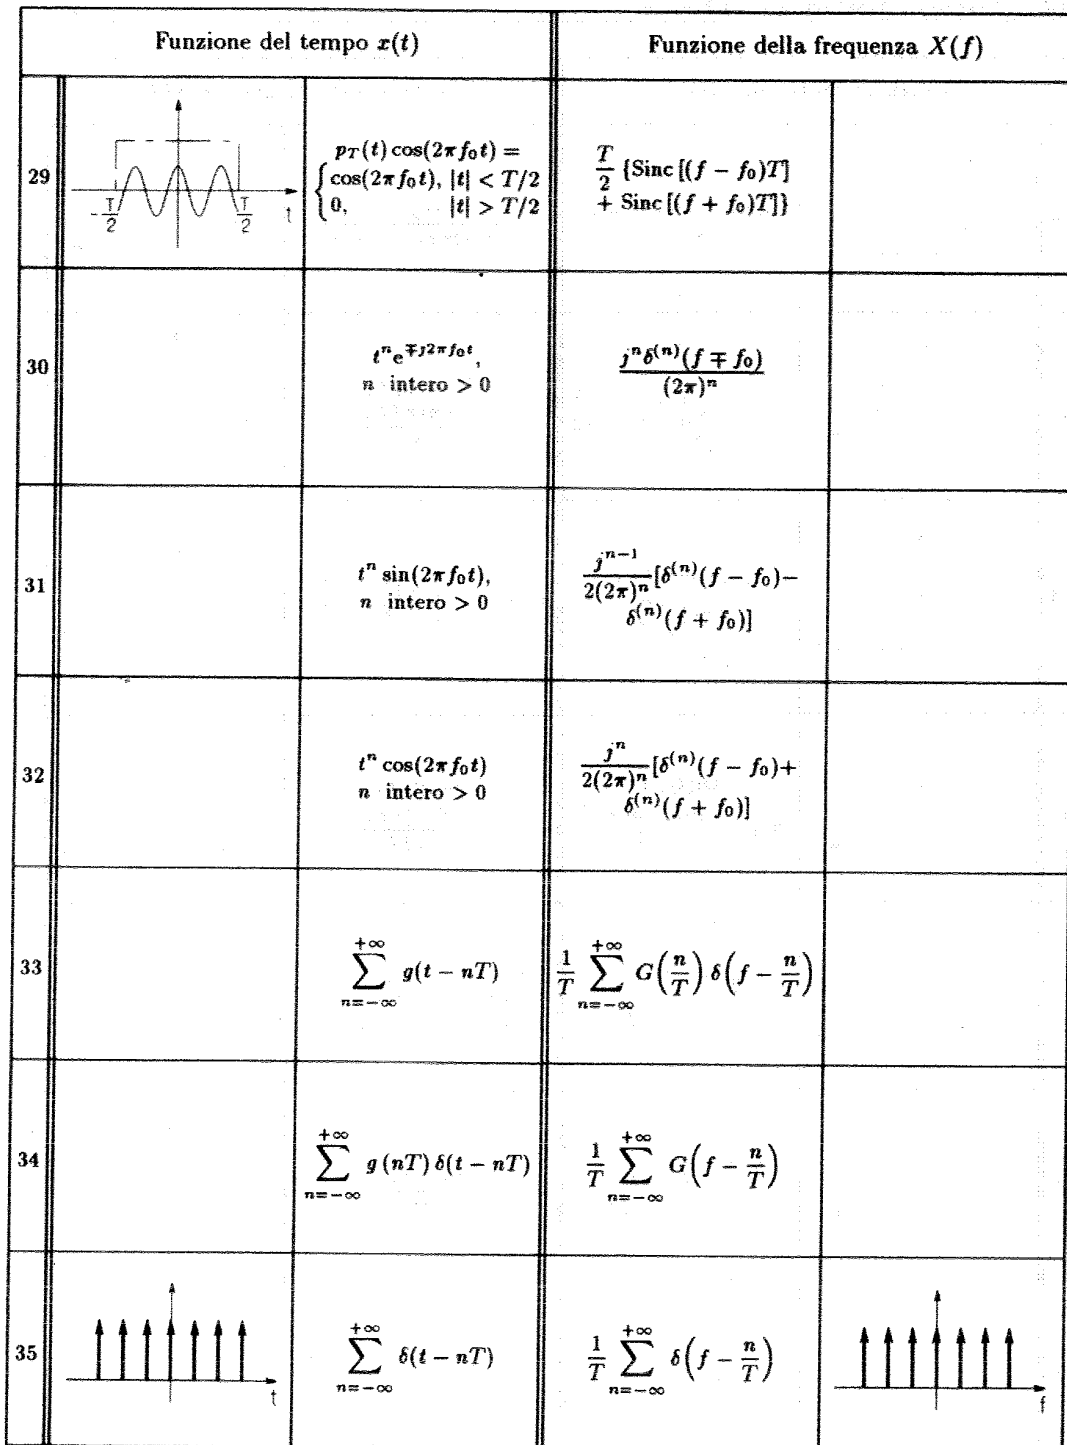 Funzione del tempo x(t)
Funzione della frequenza X(f)
29
-T/2
T/2
t
p_T(t) cos(2πf₀t) =
{ cos(2πf₀t), |t| < T/2
0, |t| > T/2
T/2 {Sinc [(f − f₀)T]
+ Sinc [(f + f₀)T]}
30
tⁿ e^{∓j2πf₀t},
n intero > 0
jⁿδ⁽ⁿ⁾(f ∓ f₀) / (2π)ⁿ
31
tⁿ sin(2πf₀t),
n intero > 0
jⁿ⁻¹ / 2(2π)ⁿ [δ⁽ⁿ⁾(f − f₀)−
δ⁽ⁿ⁾(f + f₀)]
32
tⁿ cos(2πf₀t)
n intero > 0
jⁿ / 2(2π)ⁿ [δ⁽ⁿ⁾(f − f₀)+
δ⁽ⁿ⁾(f + f₀)]
33
∑_{n=−∞}^{+∞} g(t − nT)
1/T ∑_{n=−∞}^{+∞} G(n/T) δ(f − n/T)
34
∑_{n=−∞}^{+∞} g (nT) δ(t − nT)
1/T ∑_{n=−∞}^{+∞} G(f − n/T)
35
t
∑_{n=−∞}^{+∞} δ(t − nT)
1/T ∑_{n=−∞}^{+∞} δ(f − n/T)
f